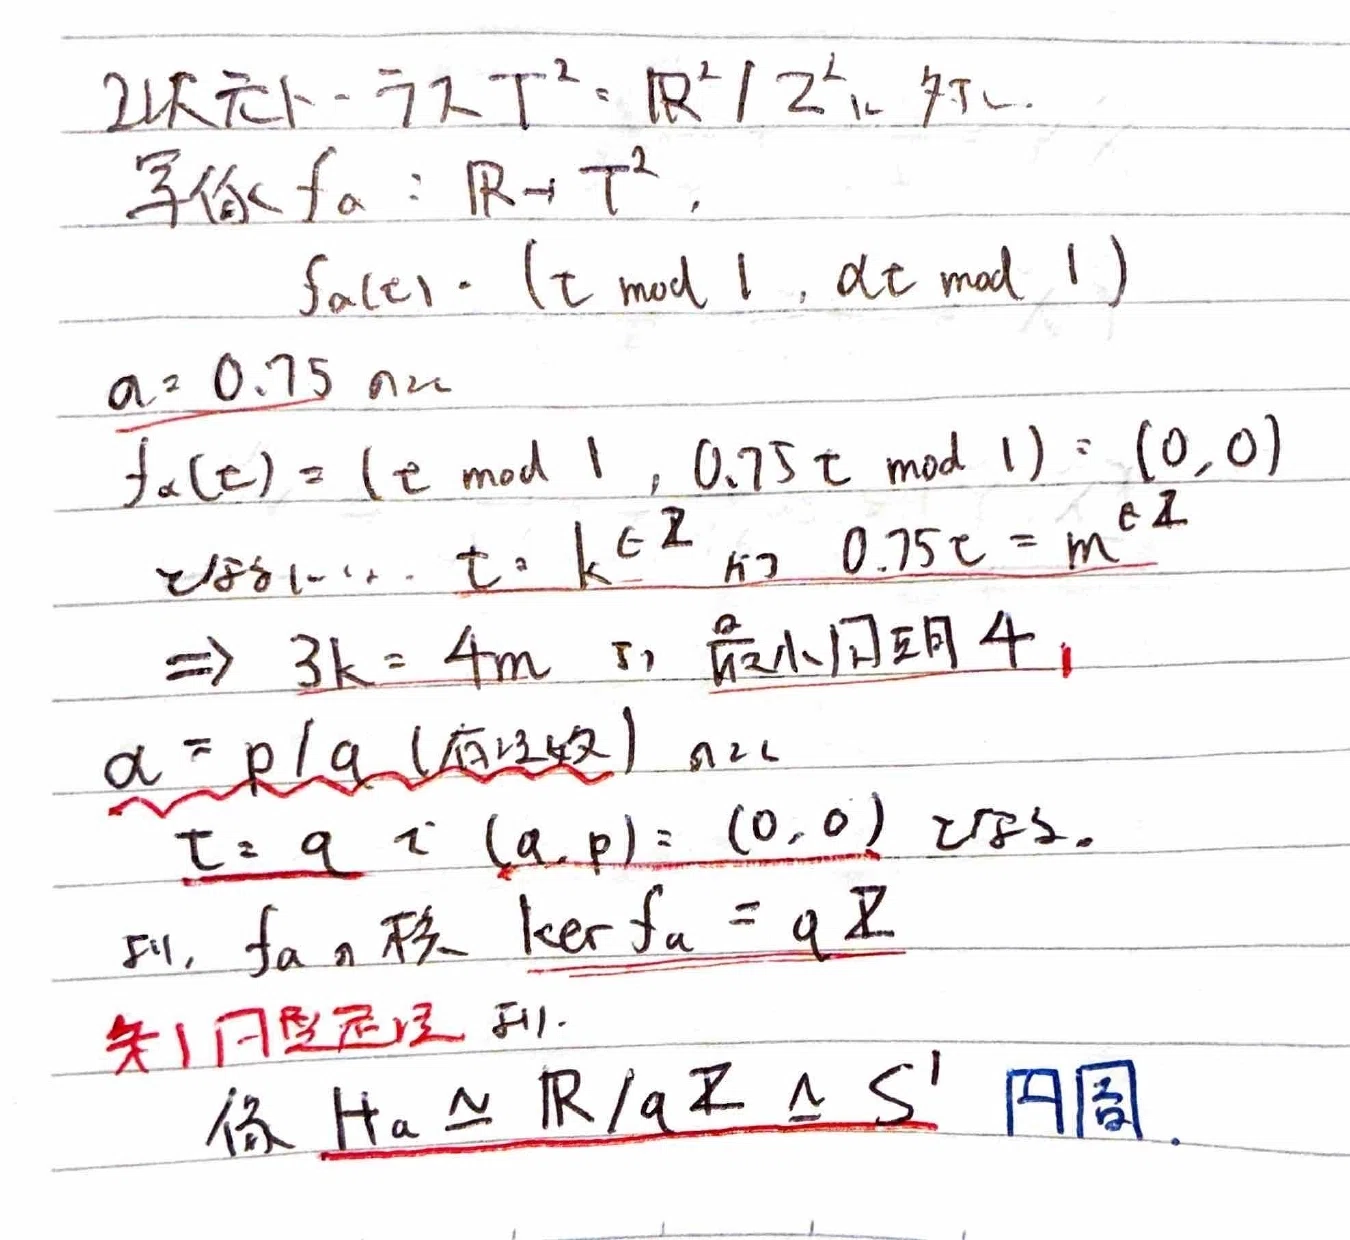 2次元トーラス T² = ℝ² / ℤ² に対し.
写像 fα : ℝ → T²,
fα(t) = (t mod 1, αt mod 1)
α = 0.75 のとき
fα(t) = (t mod 1, 0.75t mod 1) = (0, 0)
となるには... t = k ∈ ℤ かつ 0.75t = m ∈ ℤ
⇒ 3k = 4m より 最小周期 4
α = p/q (有理数) のとき
t = q で (q, p) = (0, 0) となる。
より, fα の核 ker fα = qℤ
第1同型定理 より.
像 Hα ≃ ℝ/qℤ ≃ S¹ 円周.